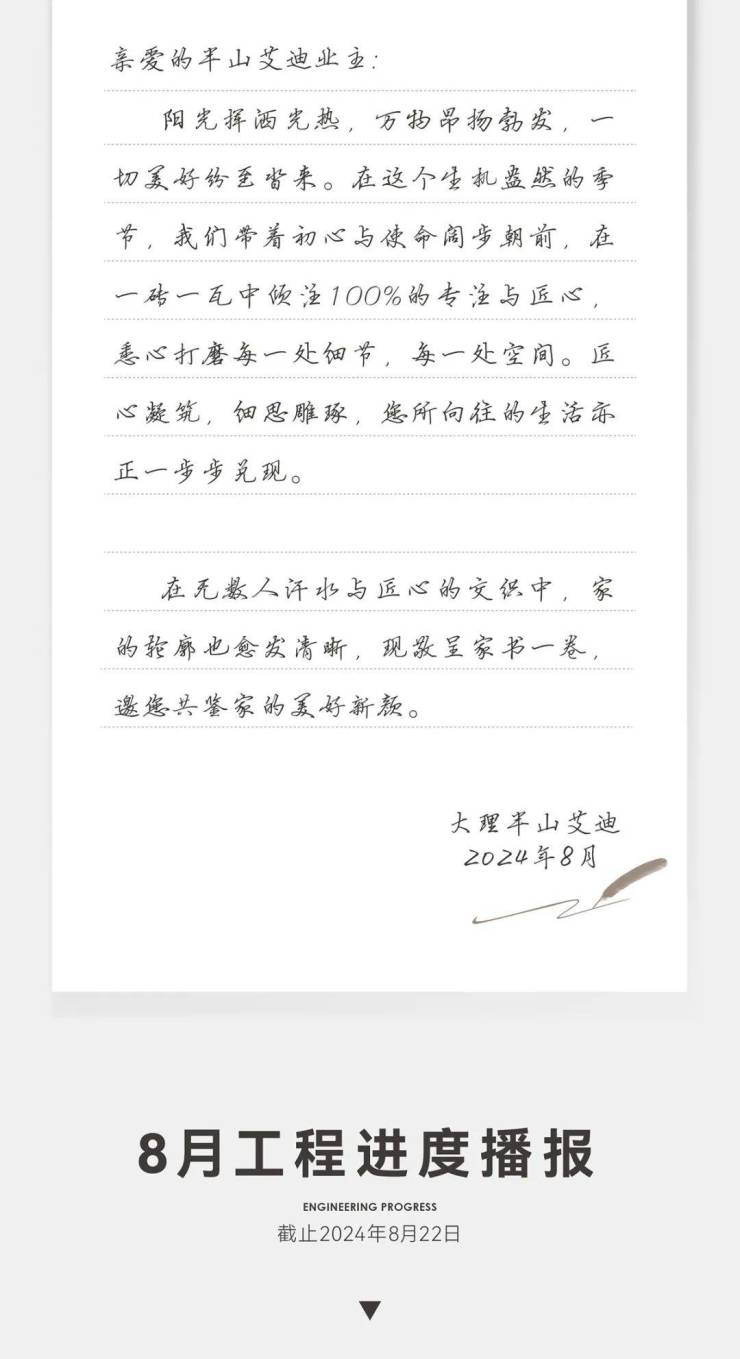 亲爱的半山艾迪业主：
阳光挥洒光热，万物昂扬勃发，一
切美好纷至沓来。在这个生机盎然的季
节，我们带着初心与使命阔步朝前，在
一砖一瓦中倾注100%的专注与匠心，
悉心打磨每一处细节，每一处空间。匠
心凝筑，细思雕琢，您所向往的生活亦
正一步步兑现。
在无数人汗水与匠心的交织中，家
的轮廓也愈发清晰，现敬呈家书一卷，
邀您共鉴家的美好新颜。
大理半山艾迪
2024年8月
8月工程进度播报
ENGINEERING PROGRESS
截止2024年8月22日